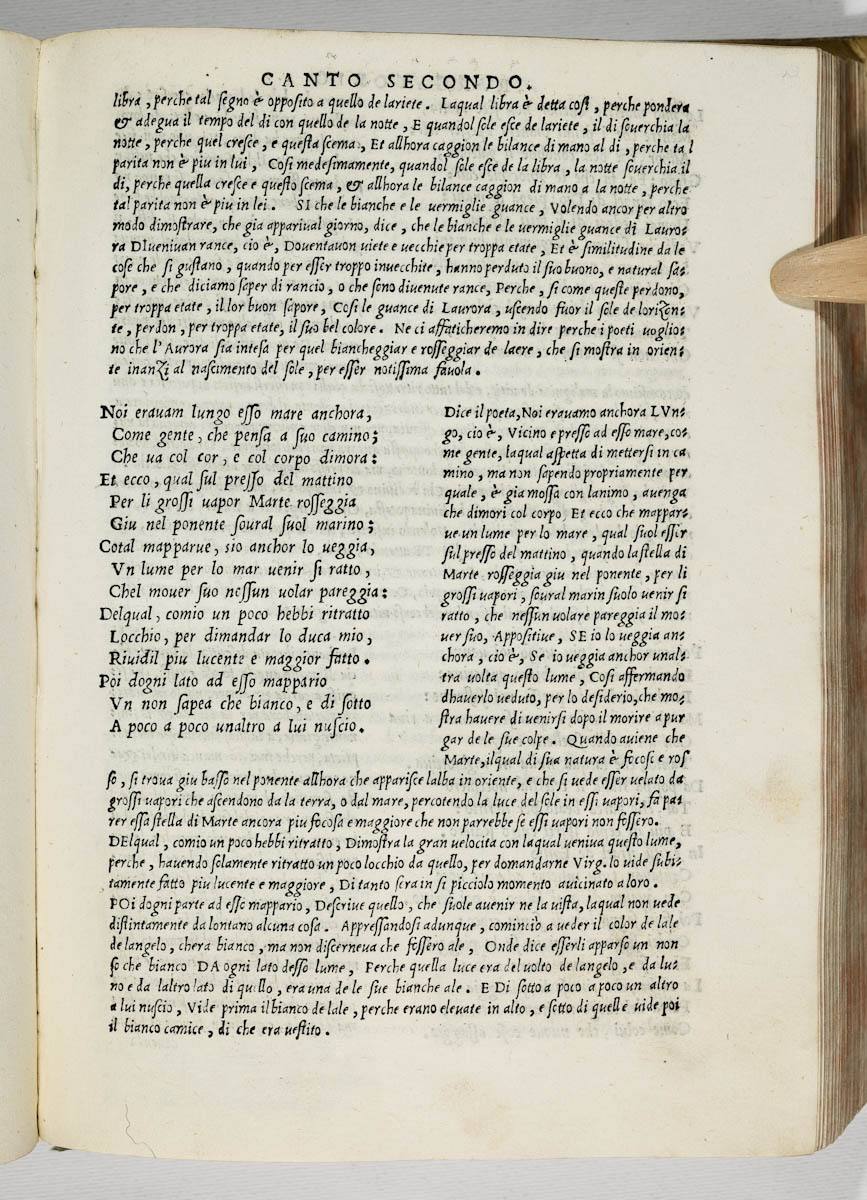 CANTO SECONDO.
libra, perche tal segno è opposito a quello de lariete. Laqual libra è detta cosi, perche pondera
& adegua il tempo del di con quello de la notte, E quandol sole esce de lariete, il di souerchia la
notte, perche quel cresce, e questa scema, Et allhora caggion le bilance di mano al di, perche tal
parita non è piu in lui, Cosi medesimamente, quandol sole esce de la libra, la notte souerchia il
di, perche quella cresce e questo scema, & allhora le bilance caggion di mano a la notte, perche
tal parita non è piu in lei. SI che le bianche e le vermiglie guance, Volendo ancor per altro
modo dimostrare, che gia appariual giorno, dice, che le bianche e le vermiglie guance di Lauro-
ra DIueniuan rance, cio è, Douentauon uiete e uecchie per troppa etate, Et è similitudine da le
cose che si gustano, quando per esser troppo inuecchite, hanno perduto il suo buono, e natural sa-
pore, e che diciamo saper di rancio, o che sono diuenute rance, Perche, si come queste perdono,
per troppa etate, il lor buon sapore, Cosi le guance di Laurora, uscendo fuor il sole de lorizon-
te, perdon, per troppa etate, il suo bel colore. Ne ci affaticheremo in dire perche i poeti uoglio-
no che l'Aurora sia intesa per quel biancheggiar e rosseggiar de laere, che si mostra in orien-
te inanzi al nascimento del sole, per esser notissima fauola.
Noi erauam lungo esso mare anchora,
Come gente, che pensa a suo camino;
Che ua col cor, e col corpo dimora:
Et ecco, qual sul presso del mattino
Per li grossi uapor Marte rosseggia
Giu nel ponente soural suol marino;
Cotal mapparue, sio anchor lo ueggia,
Vn lume per lo mar uenir si ratto,
Chel mouer suo nessun uolar pareggia:
Delqual, comio un poco hebbi ritratto
Locchio, per dimandar lo duca mio,
Riuidil piu lucente e maggior fatto.
Poi dogni lato ad esso mappario
Vn non sapea che bianco, e di sotto
A poco a poco unaltro a lui nuscio.
Dice il poeta, Noi erauamo anchora LVn-
go, cio è, Vicino e presso ad esso mare, co-
me gente, laqual aspetta di mettersi in ca
mino, ma non sapendo propriamente per
quale, è gia mossa con lanimo, auenga
che dimori col corpo, Et ecco che mappar-
ue un lume per lo mare, qual suol esser
sul presso del mattino, quando la stella di
Marte rosseggia giu nel ponente, per li
grossi uapori, soural marin suolo uenir si
ratto, che nessun uolare pareggia il mo-
uer suo, Appositiue, SE io lo ueggia an-
chora, cio è, Se io ueggia anchor unal-
tra uolta questo lume, Cosi affermando
dhauerlo ueduto, per lo desiderio, che mo-
stra hauere di uenirsi dopo il morire a pur
gar de le sue colpe. Quando auiene che
Marte, ilqual di sua natura è focosi e ros
so, si troua giu basso nel ponente allhora che apparisce lalba in oriente, e che si uede esser uelato da
grossi uapori che ascendono da la terra, o dal mare, percotendo la luce del sole in essi uapori, fa pa-
rer essa stella di Marte ancora piu focosa e maggiore che non parrebbe se essi uapori non fossero.
DElqual, comio un poco hebbi ritratto, Dimostra la gran velocita con laqual veniua questo lume,
perche, hauendo solamente ritratto un poco locchio da quello, per domandarne Virg. lo uide subi-
tamente fatto piu lucente e maggiore, Di tanto sera in si picciolo momento auicinato a loro.
POi dogni parte ad esso mappario, Descriue quello, che suole auenir ne la uista, laqual non uede
distintamente da lontano alcuna cosa. Appressandosi adunque, cominciò a ueder il color de lale
de langelo, chera bianco, ma non discerneua che fossero ale, Onde dice esserli apparso un non
so che bianco DA ogni lato desso lume, Perche quella luce era del uolto de langelo, e da lu-
no e da laltro lato di quello, era una de le sue bianche ale. E DI sotto a poco a poco un altro
a lui nuscio, Vide prima il bianco de lale, perche erano eleuate in alto, e sotto di quelle uide poi
il bianco camice, di che era uestito.